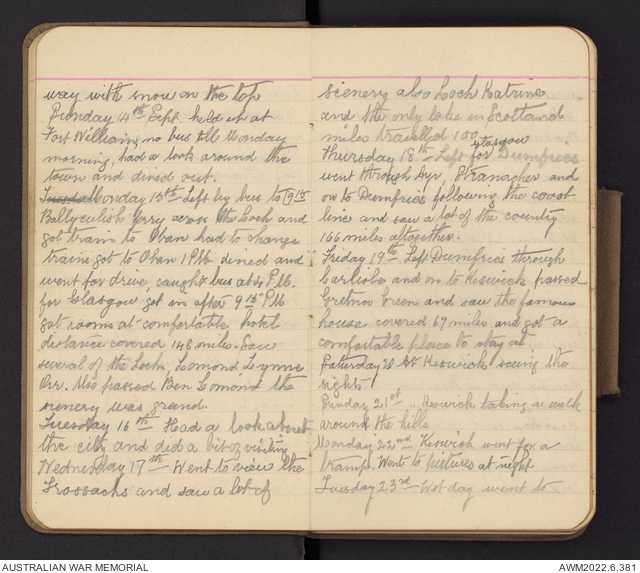 way with snow on the top
Sunday 14th Sept held up at
Fort William, no bus till Monday
morning, had a look around the
town and dined out.
Monday 15th Left by bus to 9 15
Ballyculish ferry across the Loch and
got train to Oban had to change
trains got to Oban 1 PM dined and
went for drive, caught bus at 4 PM.
for Glasgow got on after 9 15 PM
got rooms at comfortable, hotel
distance covered 148 miles. Saw
several of the Loch, Lomond Leynne
Orr. Also passed Ben Lomond the
scenery was grand.
Tuesday 16th Had a look about
the city and did a bit of visiting
Wednesday 17th Went to view the
Trossachs and saw a lot of
scenery also Loch Katrine
and the only lake in Scotland
miles travelled 100
Thursday 18th Left Glasgow for Dumfries
went through Ayr, Stranagher and
on to Dumfries following the coast
line and saw a lot of the country
166 miles altogether.
Friday 19th Left Dumfries through
Carlisle and on to Keswick passed
Gretna Green and saw the famous
house covered 69 miles and got a
comfortable place to stay at
Saturday 20 Keswick seeing the
sights
Sunday 21st " Keswick taking a walk
around the hills
Monday 22nd Keswick went for a
tramp. Went to pictures at night
Tuesday 23rd Wet day went to
AUSTRALIAN WAR MEMORIAL
AWM2022.6.381